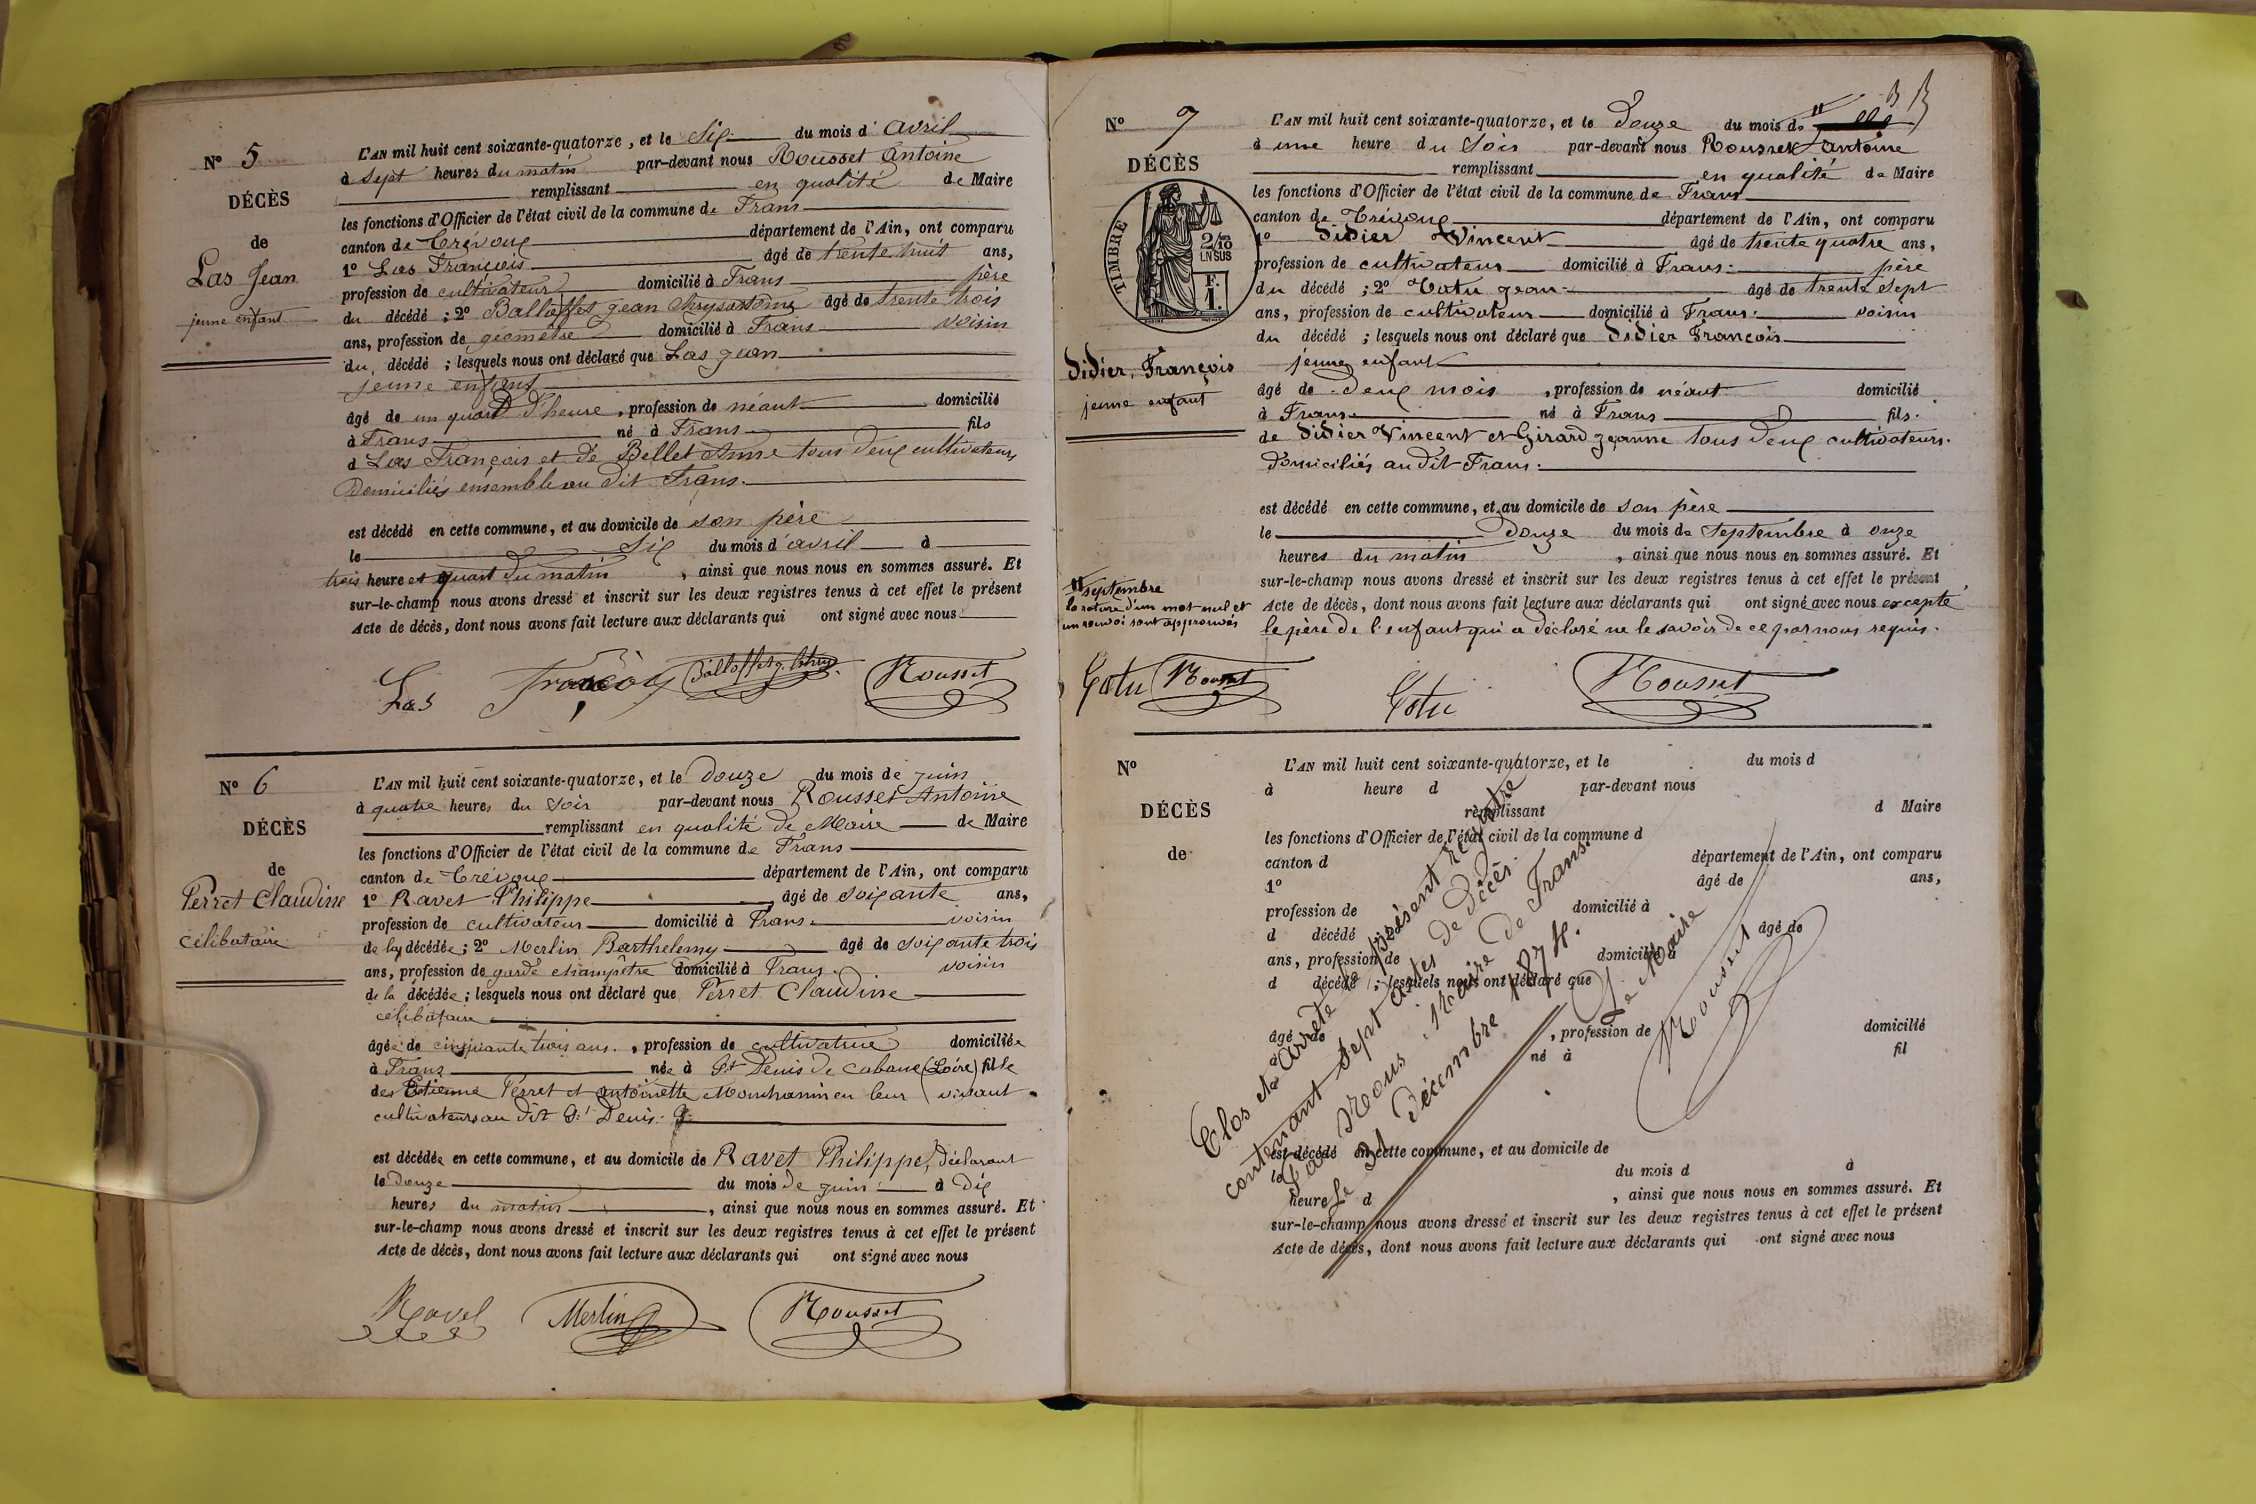 N° 5
DÉCÈS
de
Las Jean
jeune enfant
L'AN mil huit cent soixante-quatorze, et le Six du mois d'avril
à sept heures du matin par-devant nous Rousset Antoine
remplissant en qualité de Maire
les fonctions d'Officier de l'état civil de la commune de Frans
canton de Trévoux département de l'Ain, ont comparu
1° Las François âgé de trente huit ans,
profession de cultivateur domicilié à Frans père
du décédé ; 2° Balloffet jean Chrysostome âgé de trente trois
ans, profession de géomètre domicilié à Frans voisin
du décédé ; lesquels nous ont déclaré que Las jean
jeune enfant
âgé de un quart d'heure, profession de néant domicilié
à Frans né à Frans fils
d Las François et de Bellet Anne tous deux cultivateurs
Domiciliés ensemble au dit Frans.
est décédé en cette commune, et au domicile de son père
le Six du mois d'avril à
trois heure et quart du matin, ainsi que nous nous en sommes assuré. Et
sur-le-champ nous avons dressé et inscrit sur les deux registres tenus à cet effet le présent
Acte de décès, dont nous avons fait lecture aux déclarants qui ont signé avec nous
Las François Balloffet j. Chry Rousset
N° 6
DÉCÈS
de
Perret Claudine
célibataire
L'AN mil huit cent soixante-quatorze, et le Douze du mois de juin
à quatre heures du soir par-devant nous Rousset Antoine
remplissant en qualité de Maire de Maire
les fonctions d'Officier de l'état civil de la commune de Frans
canton de Trévoux département de l'Ain, ont comparu
1° Ravet Philippe âgé de soixante ans,
profession de cultivateur domicilié à Frans voisin
de la décédée ; 2° Merlin Barthelemy âgé de soixante trois
ans, profession de garde champêtre domicilié à Frans voisin
de la décédée ; lesquels nous ont déclaré que Perret Claudine
célibataire
âgée de cinquante trois ans, profession de cultivatrice domiciliée
à Frans née à St Denis de Cabane (Loire) fille
des Etienne Perret et antoinette Monchanin en leur vivant
cultivateurs au dit St Denis.
est décédée en cette commune, et au domicile de Ravet Philippe, déclarant
le douze du mois de juin à dix
heures du matin, ainsi que nous nous en sommes assuré. Et
sur-le-champ nous avons dressé et inscrit sur les deux registres tenus à cet effet le présent
Acte de décès, dont nous avons fait lecture aux déclarants qui ont signé avec nous
Ravet Merlin Rousset
N° 7
DÉCÈS
TIMBRE
2/10 EN SUS
F. 1.
Didier, François
jeune enfant
L'AN mil huit cent soixante-quatorze, et le Douze du mois de
à une heure du Soir par-devant nous Rousset antoine
remplissant en qualité de Maire
les fonctions d'Officier de l'état civil de la commune de Frans
canton de Trévoux département de l'Ain, ont comparu
1° Didier Vincent âgé de trente quatre ans,
profession de cultivateur domicilié à Frans père
du décédé ; 2° Cotu jean âgé de trente sept
ans, profession de cultivateur domicilié à Frans voisin
du décédé ; lesquels nous ont déclaré que Didier François
jeune enfant
âgé de deux mois, profession de néant domicilié
à Frans né à Frans fils
de Didier Vincent et Girard jeanne tous deux cultivateurs
domiciliés au dit Frans.
est décédé en cette commune, et au domicile de son père
le Douze du mois de Septembre à onze
heures du matin, ainsi que nous nous en sommes assuré. Et
sur-le-champ nous avons dressé et inscrit sur les deux registres tenus à cet effet le présent
Acte de décès, dont nous avons fait lecture aux déclarants qui ont signé avec nous excepté
le père de l'enfant qui a déclaré ne le savoir de ce par nous requis.
" septembre
la rature d'un mot nul et
un renvoi sont approuvés
Cotu Rousset Cotu Rousset
N°
DÉCÈS
de
L'AN mil huit cent soixante-quatorze, et le du mois d
à heure d par-devant nous
remplissant d Maire
les fonctions d'Officier de l'état civil de la commune d
canton d département de l'Ain, ont comparu
1° âgé de ans,
profession de domicilié à
d décédé ; 2° âgé de
ans, profession de domicilié à
d décédé ; lesquels nous ont déclaré que
âgé de , profession de domicilié
à né à fil
est décédé en cette commune, et au domicile de
le du mois d à
heure d , ainsi que nous nous en sommes assuré. Et
sur-le-champ nous avons dressé et inscrit sur les deux registres tenus à cet effet le présent
Acte de décès, dont nous avons fait lecture aux déclarants qui ont signé avec nous
Clos et arrêté le présent registre
contenant sept actes de décès.
Par nous Maire de Frans
Le 31 décembre 1874.
Le Maire
Rousset